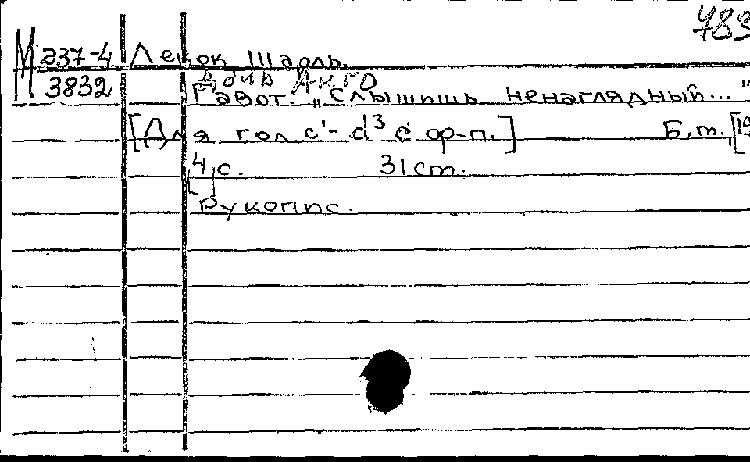 783
М 237-4 Лекок Шарль.
3832 Дочь Анго
Гавот. "Слышишь ненаглядный..."
[Для гол c¹- d³ с ф-п.] Б.м., [19
[4] с. 31 ст.
Рукопис.